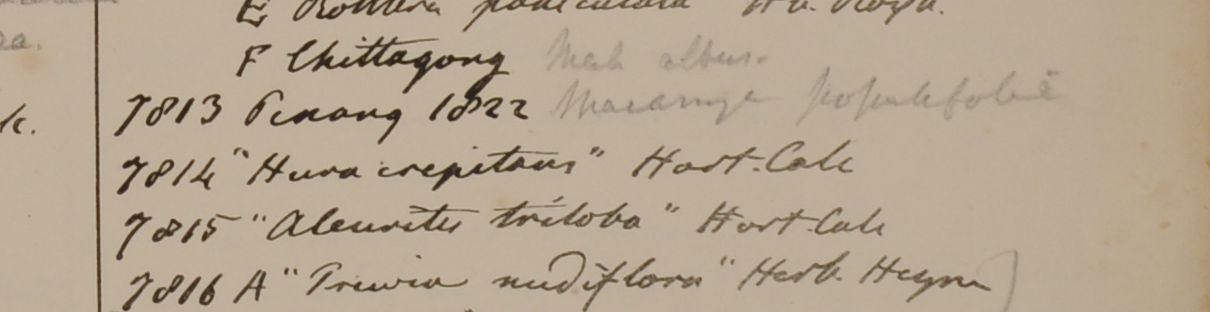 E Rottlera paniculata Hb. Roxb.
F Chittagong Mal. albus.
7813 Penang 1822 Macaranga populifolia
7814 "Hura crepitans" Hort. Calc
7815 "Aleurites triloba" Hort. Calc
7816 A "Trewia nudiflora" Herb. Heyne